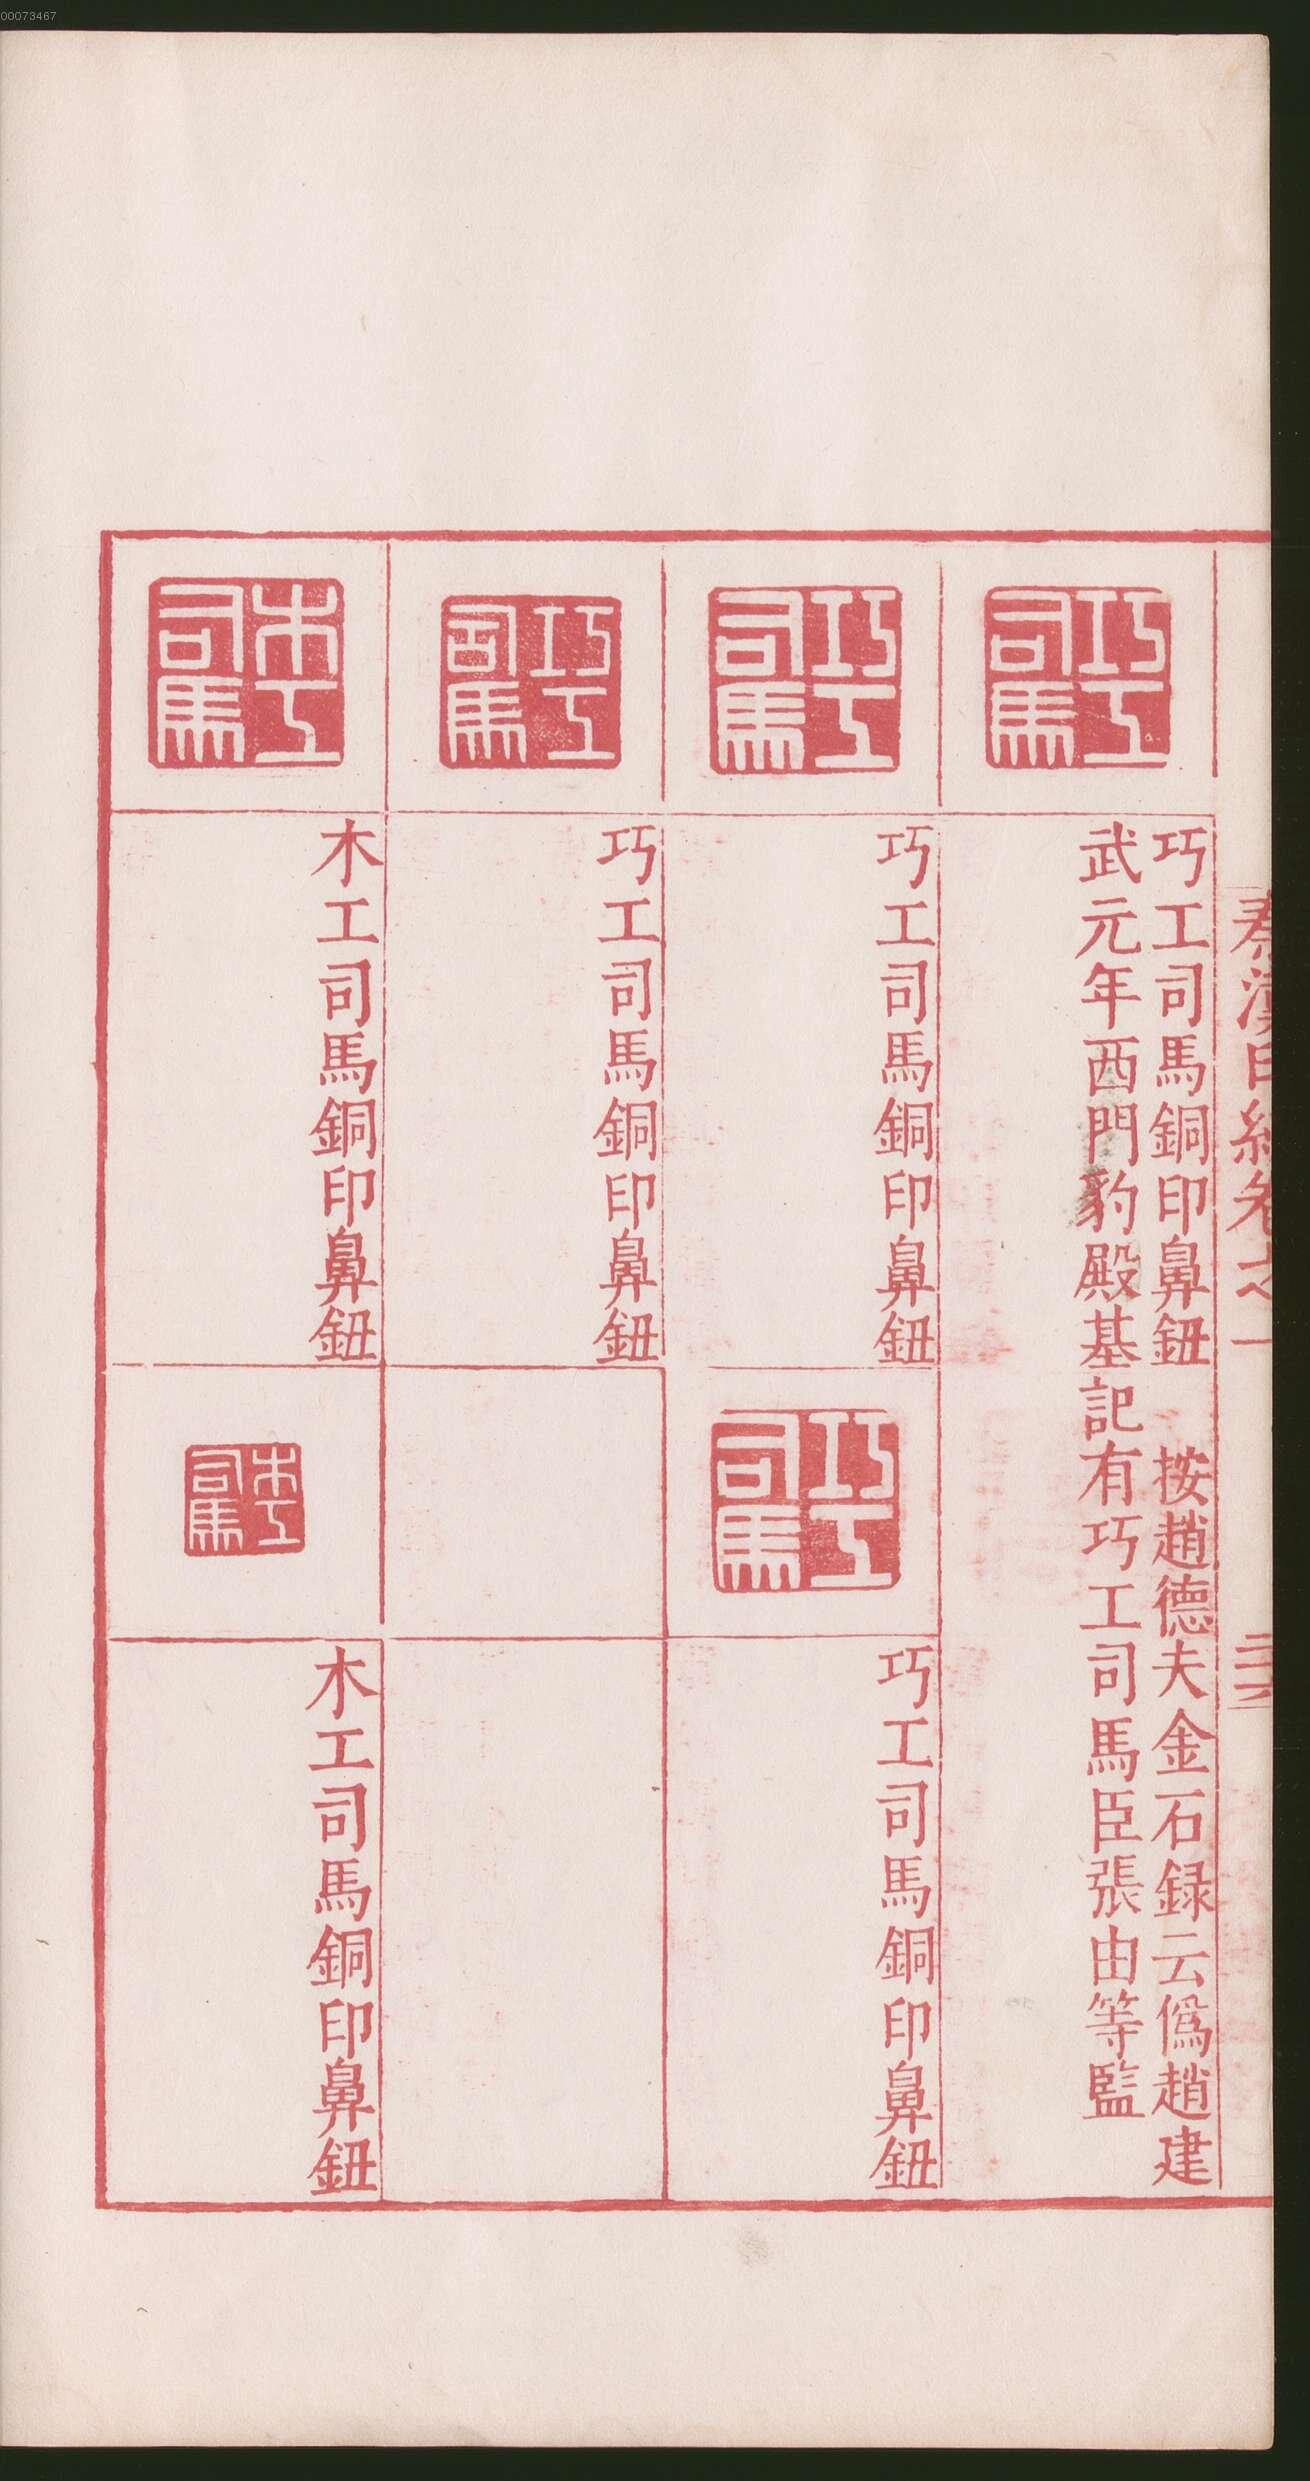 00073467
秦漢印統卷之一
巧工司馬
巧工司馬銅印鼻鈕　按趙德夫金石録云僞趙建
武元年西門豹殿基記有巧工司馬臣張由等監
巧工司馬
巧工司馬銅印鼻鈕
巧工司馬
巧工司馬銅印鼻鈕
巧工司馬
巧工司馬銅印鼻鈕
木工司馬
木工司馬銅印鼻鈕
木工司馬
木工司馬銅印鼻鈕